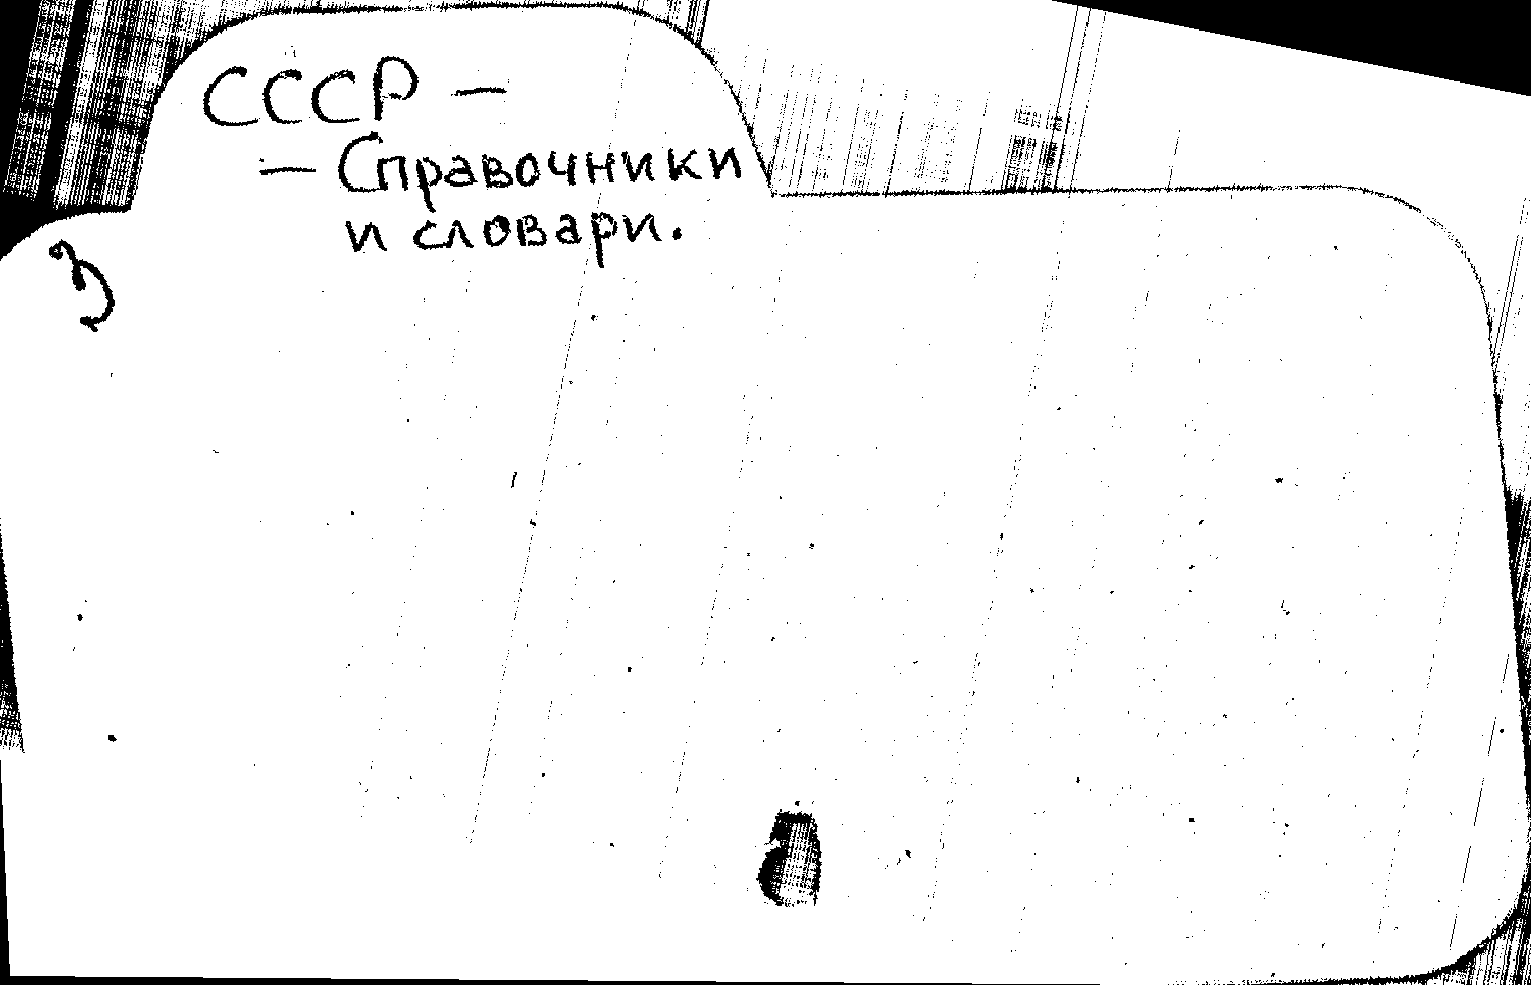 СССР —
— Справочники
и словари.